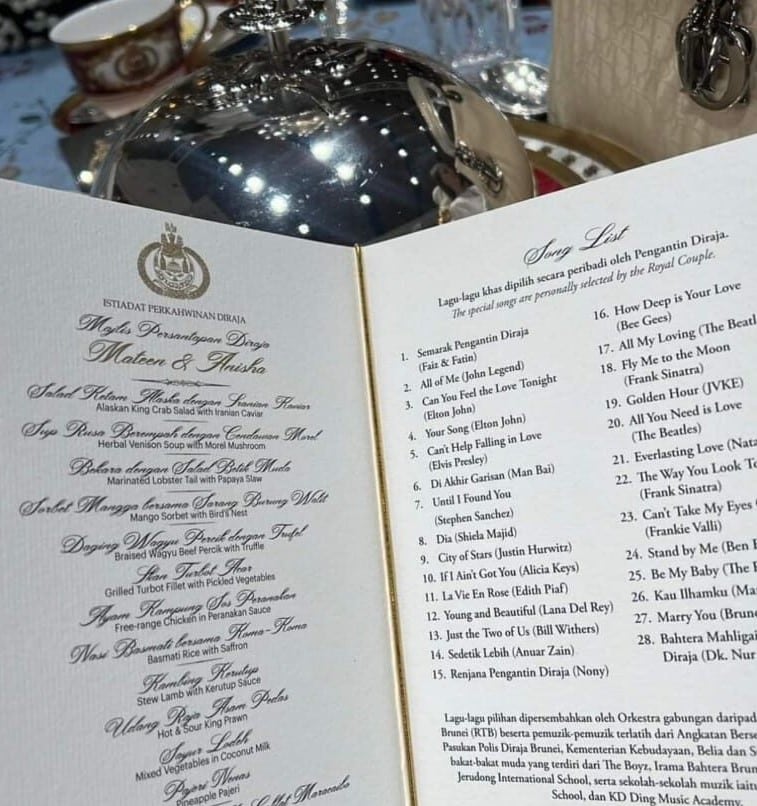 ISTIADAT PERKAHWINAN DIRAJA
Majlis Persantapan Diraja
Mateen & Anisha
Salad Ketam Alaska dengan Iranian Kaviar
Alaskan King Crab Salad with Iranian Caviar
Sup Rusa Berempah dengan Cendawan Morel
Herbal Venison Soup with Morel Mushroom
Bekara dengan Salad Betik Muda
Marinated Lobster Tail with Papaya Slaw
Sorbet Mangga bersama Sarang Burung Walit
Mango Sorbet with Bird's Nest
Daging Wagyu Percik dengan Trufel
Braised Wagyu Beef Percik with Truffle
Ikan Turbot Acar
Grilled Turbot Fillet with Pickled Vegetables
Ayam Kampung Sos Peranakan
Free-range Chicken in Peranakan Sauce
Nasi Basmati bersama Koma-Koma
Basmati Rice with Saffron
Kambing Kerutup
Stew Lamb with Kerutup Sauce
Udang Raja Asam Pedas
Hot & Sour King Prawn
Sayur Lodeh
Mixed Vegetables in Coconut Milk
Pajeri Nenas
Pineapple Pajeri
Song List
Lagu-lagu khas dipilih secara peribadi oleh Pengantin Diraja.
The special songs are personally selected by the Royal Couple.
1. Semarak Pengantin Diraja
(Faiz & Fatin)
2. All of Me (John Legend)
3. Can You Feel the Love Tonight
(Elton John)
4. Your Song (Elton John)
5. Can't Help Falling in Love
(Elvis Presley)
6. Di Akhir Garisan (Man Bai)
7. Until I Found You
(Stephen Sanchez)
8. Dia (Shiela Majid)
9. City of Stars (Justin Hurwitz)
10. If I Ain't Got You (Alicia Keys)
11. La Vie En Rose (Edith Piaf)
12. Young and Beautiful (Lana Del Rey)
13. Just the Two of Us (Bill Withers)
14. Sedetik Lebih (Anuar Zain)
15. Renjana Pengantin Diraja (Nony)
16. How Deep is Your Love
(Bee Gees)
17. All My Loving (The Beatl
18. Fly Me to the Moon
(Frank Sinatra)
19. Golden Hour (JVKE)
20. All You Need is Love
(The Beatles)
21. Everlasting Love (Nata
22. The Way You Look To
(Frank Sinatra)
23. Can't Take My Eyes
(Frankie Valli)
24. Stand by Me (Ben
25. Be My Baby (The
26. Kau Ilhamku (Ma
27. Marry You (Brun
28. Bahtera Mahligai
Diraja (Dk. Nur
Lagu-lagu pilihan dipersembahkan oleh Orkestra gabungan daripad
Brunei (RTB) beserta pemuzik-pemuzik terlatih dari Angkatan Berse
Pasukan Polis Diraja Brunei, Kementerian Kebudayaan, Belia dan S
bakat-bakat muda yang terdiri dari The Boyz, Irama Bahtera Brun
Jerudong International School, serta sekolah-sekolah muzik iait
School, dan KD Ding Music Academy.